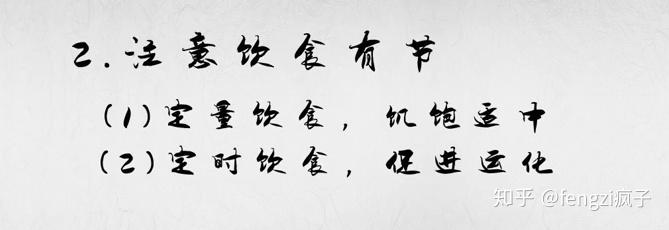 2.注意饮食有节
(1)定量饮食，饥饱适中
(2)定时饮食，促进运化
知乎 @fengzi疯子